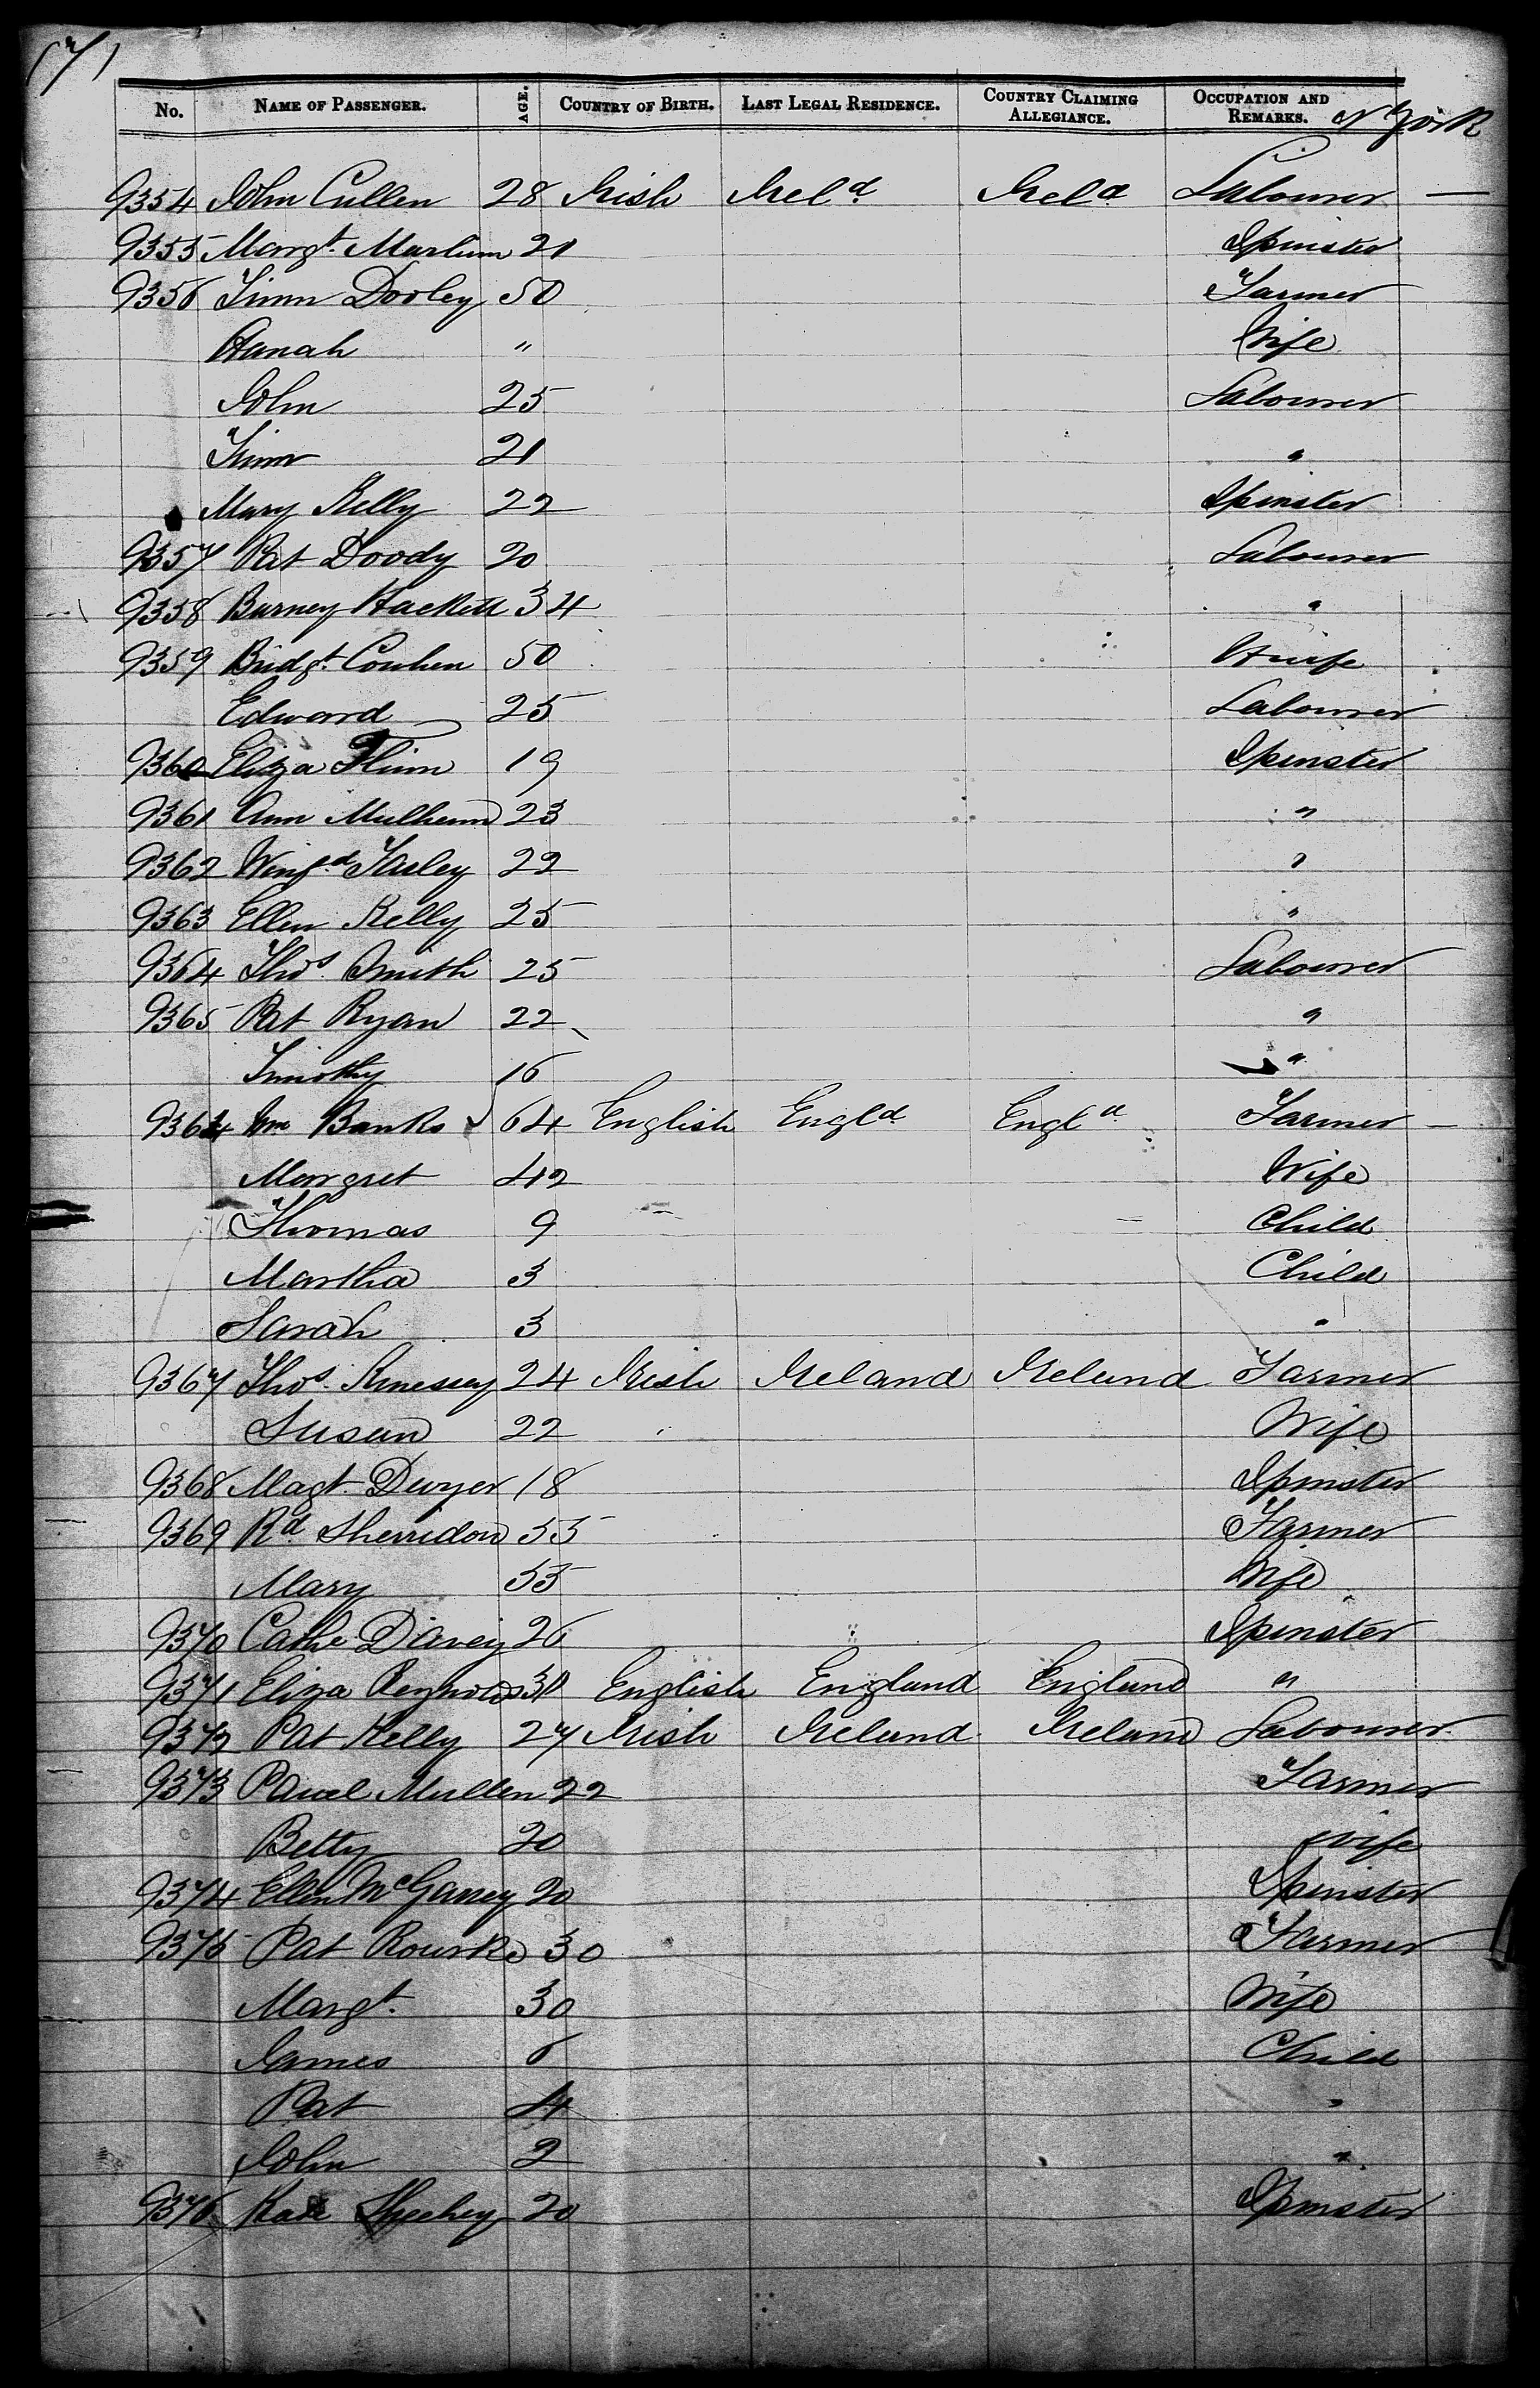 (7)
No. NAME OF PASSENGER. AGE. COUNTRY OF BIRTH. LAST LEGAL RESIDENCE. COUNTRY CLAIMING ALLEGIANCE. OCCUPATION AND REMARKS. N York
9354 John Cullen 28 Irish Ireld Ireld Labourer —
9355 Margt. 21 Spinster
9356 Timn Dooley 50 Farmer
Hanah " Wife
John 25 Labourer
Timn 21 "
Mary Kelly 22 Spinster
9357 Pat Doody 20 Labourer
9358 Barney Hackett 34 "
9359 Bridgt. 50 Hwife
Edward 25 Labourer
9360 Eliza Flinn 19 Spinster
9361 Ann 23 "
9362 Winfd. Farley 22 "
9363 Ellen Kelly 25 "
9364 Thos. Smith 25 Labourer
9365 Pat Ryan 22 "
Timothy 16 "
Wm Banks 64 English Engld. Engld. Farmer —
Margret 42 Wife
Thomas 9 Child
Martha 3 Child
Sarah 3 "
9367 Thos. 24 Irish Ireland Ireland Farmer
Susan 22 Wife
9368 Magt. Dwyer 18 Spinster
9369 Rd. Sherridon 55 Farmer
Mary 55 Wife
9370 Cathe Davey 26 Spinster
9371 Eliza Reynolds English England England "
9372 Pat Kelly 27 Irish Ireland Ireland Labourer
9373 Mullen 22 Farmer
Betty 20 Wife
9374 Ellen McGarrey 20 Spinster
9375 Pat Rourke 30 Farmer
Margt. 30 Wife
James 6 Child
Pat 4 "
John 2 "
9376 Kate Sheehey 20 Spinster